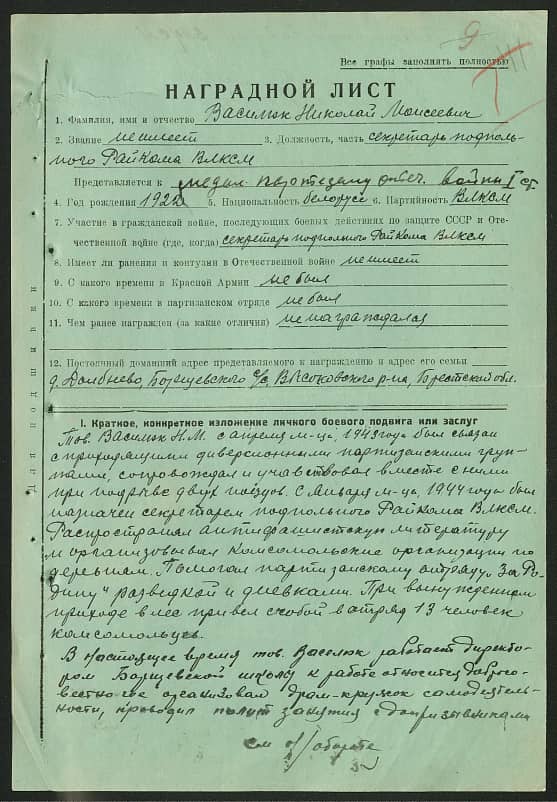 9
Все графы заполнять полностью
НАГРАДНОЙ ЛИСТ
1. Фамилия, имя и отчество Василюк Николай Моисеевич
2. Звание не имеет 3. Должность, часть секретарь подполь-
ного Райкома ВЛКСМ
Представляется к медал. партизану отеч. войны I ст
4. Год рождения 192 5. Национальность белорус 6. Партийность ВЛКСМ
7. Участие в гражданской войне, последующих боевых действиях по защите СССР и Оте-
чественной войне (где, когда) секретарь подпольного Райкома ВЛКСМ
8. Имеет ли ранения и контузии в Отечественной войне не имеет
9. С какого времени в Красной Армии не был
10. С какого времени в партизанском отряде не был
11. Чем ранее награжден (за какие отличия) не награждался
12. Постоянный домашний адрес представляемого к награждению и адрес его семьи
д. Долбнево, Борщевского с/с, Высоковского р-на, Брестской обл.
Для подшивки
I. Краткое, конкретное изложение личного боевого подвига или заслуг
Тов. Василюк Н.М. с апреля м-ца, 1943 года был связан
с приходящими диверсионными партизанскими груп-
пами, сопровождал и участвовал вместе с ними
при подрыве двух поездов. С Января м-ца, 1944 года был
назначен секретарем подпольного Райкома ВЛКСМ.
Распространял антифашистскую литературу
и организовывал комсомольские организации по
деревням. Помогал партизанскому отряду "За Ро-
дину" разведкой и дневками. При вынужденном
приходе в лес привел с собой в отряд 13 человек
комсомольцев.
В настоящее время тов. Василюк работает директо-
ром Борщевской школы к работе относится добросо-
вестно организовал драм-кружок самодеятель-
ности, проводил полит занятия с допризывниками
см. на обороте